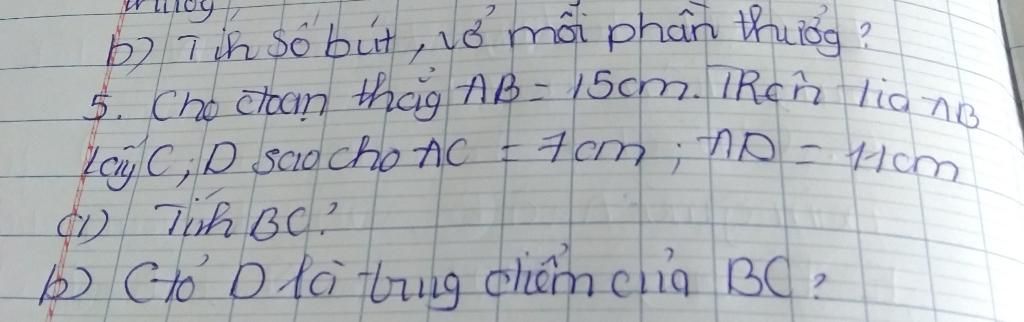 b) Tíh số bút, vở mỗi phần thưởg?
5. Cho đoạn thẳg AB = 15cm. TRên tia AB
lấy C; D sao cho AC = 7cm; AD = 11cm
a) Tíh BC?
b) C/tỏ D là trug điểm của BC?